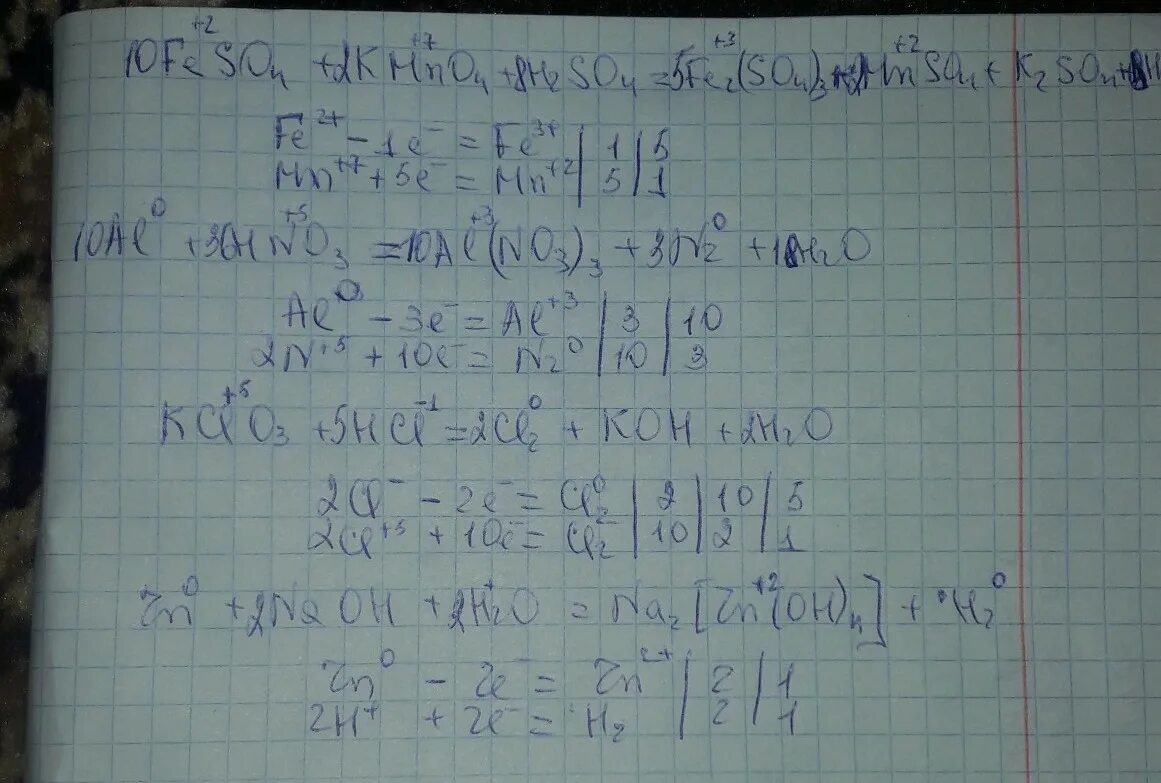 +2 +7 +3 +2
10FeSO4 + 2KMnO4 + 8H2SO4 = 5Fe2(SO4)3 + 2MnSO4 + K2SO4 + 8H
Fe²⁺ - 1e⁻ = Fe³⁺ | 1 | 5
Mn⁺⁷ + 5e⁻ = Mn⁺² | 5 | 1
0 +5 +3 0
10Al + 36HNO3 = 10Al(NO3)3 + 3N2 + 18H2O
Al⁰ - 3e⁻ = Al⁺³ | 3 | 10
2N⁺⁵ + 10e⁻ = N2⁰ | 10 | 3
+5 -1 0
KClO3 + 5HCl = 2Cl2 + KOH + 2H2O
2Cl⁻ - 2e⁻ = Cl2⁰ | 2 | 10 | 5
2Cl⁺⁵ + 10e⁻ = Cl2 | 10 | 2 | 1
0 + +2 0
Zn + 2NaOH + 2H2O = Na2[Zn(OH)4] + H2
Zn⁰ - 2e⁻ = Zn²⁺ | 2 | 1
2H⁺ + 2e⁻ = H2 | 2 | 1